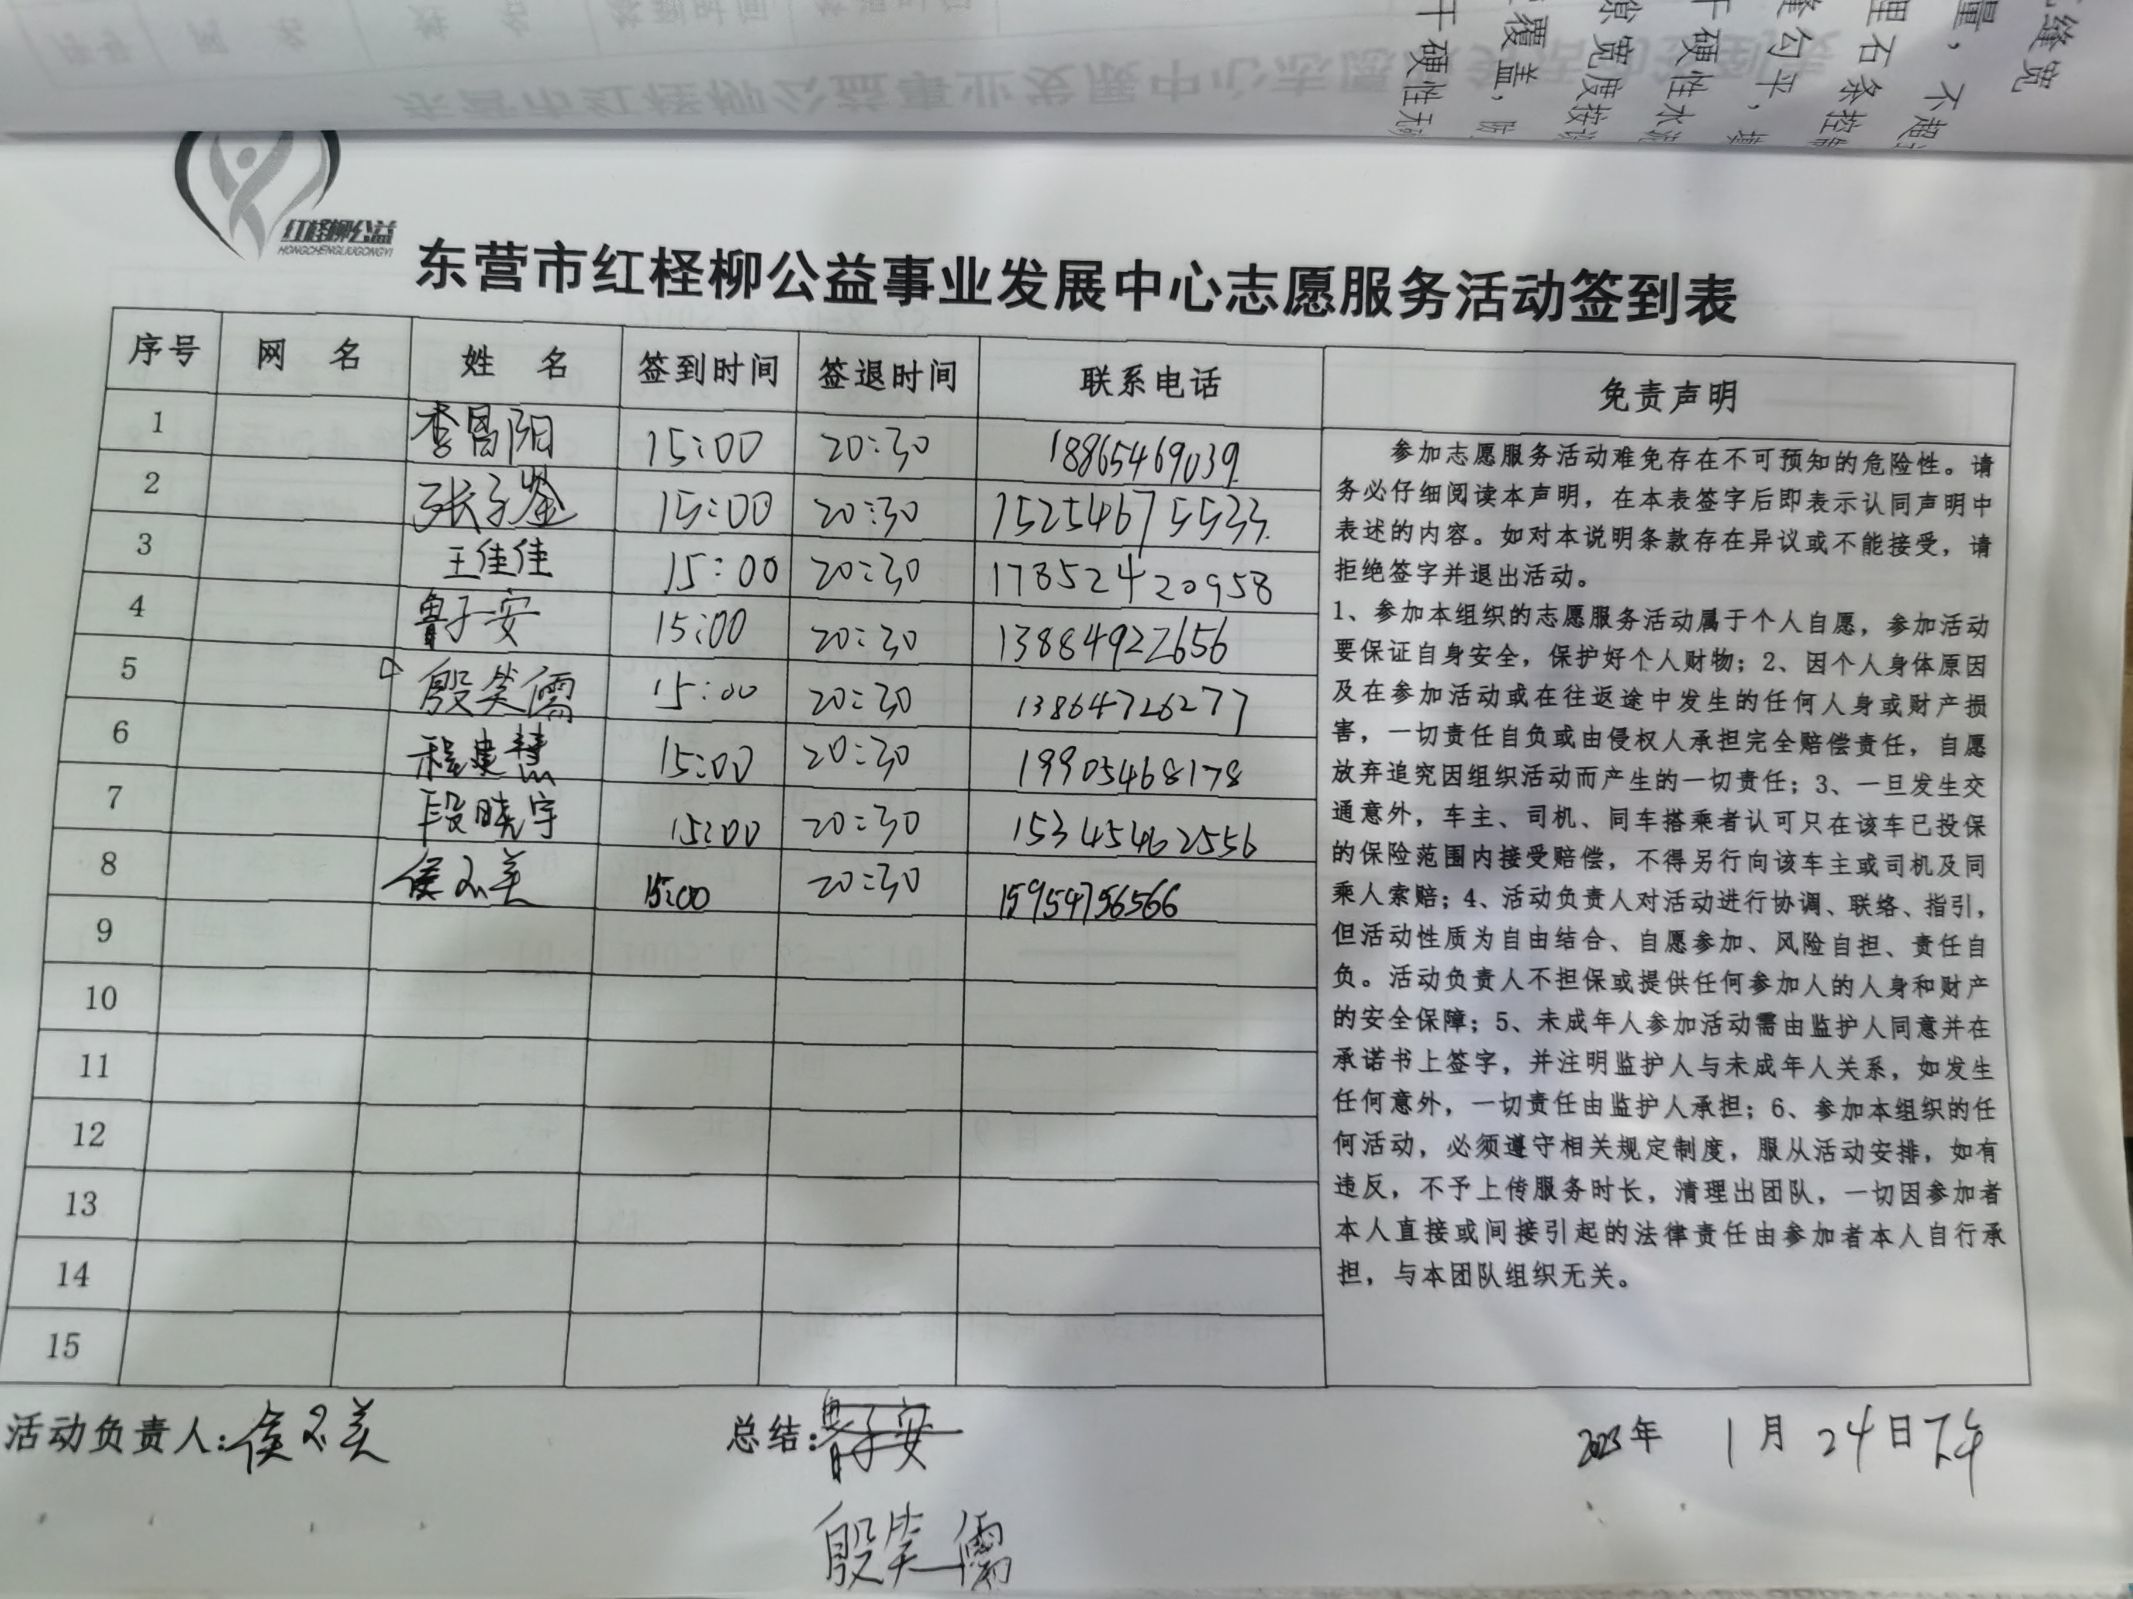 红柽柳公益
HONGCHENGLIUGONGYI
东营市红柽柳公益事业发展中心志愿服务活动签到表
序号 网 名 姓 名 签到时间 签退时间 联系电话 免责声明
1 李昌阳 15:00 20:30 18865469039
2 张子鉴 15:00 20:30 15254675533
3 王佳佳 15:00 20:30 17852420958
4 鲁子安 15:00 20:30 13884922656
5 殷笑儒 15:00 20:30 13864726277
6 程建慧 15:00 20:30 19905468178
7 段晓宇 15:00 20:30 15345462556
8 侯不美 15:00 20:30 15954756566
9
10
11
12
13
14
15
参加志愿服务活动难免存在不可预知的危险性。请
务必仔细阅读本声明，在本表签字后即表示认同声明中
表述的内容。如对本说明条款存在异议或不能接受，请
拒绝签字并退出活动。
1、参加本组织的志愿服务活动属于个人自愿，参加活动
要保证自身安全，保护好个人财物；2、因个人身体原因
及在参加活动或在往返途中发生的任何人身或财产损
害，一切责任自负或由侵权人承担完全赔偿责任，自愿
放弃追究因组织活动而产生的一切责任；3、一旦发生交
通意外，车主、司机、同车搭乘者认可只在该车已投保
的保险范围内接受赔偿，不得另行向该车主或司机及同
乘人索赔；4、活动负责人对活动进行协调、联络、指引，
但活动性质为自由结合、自愿参加、风险自担、责任自
负。活动负责人不担保或提供任何参加人的人身和财产
的安全保障；5、未成年人参加活动需由监护人同意并在
承诺书上签字，并注明监护人与未成年人关系，如发生
任何意外，一切责任由监护人承担；6、参加本组织的任
何活动，必须遵守相关规定制度，服从活动安排，如有
违反，不予上传服务时长，清理出团队，一切因参加者
本人直接或间接引起的法律责任由参加者本人自行承
担，与本团队组织无关。
活动负责人：侯不美 总结：鲁子安 2023年 1月24日下午
殷笑儒